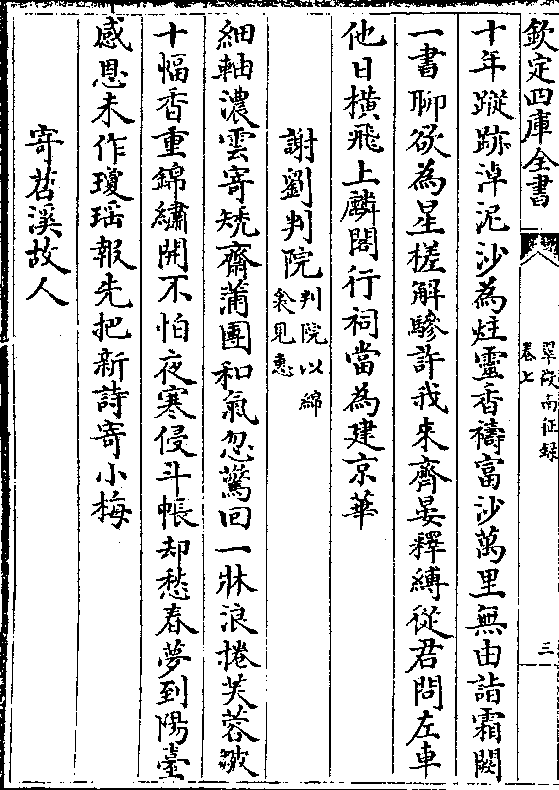 欽定四庫全書
翠微南征録
卷七
三
十年蹤跡淖泥沙為炷靈香禱富沙萬里無由詣霜闕
一書聊欲為星槎解驂許我來齊晏釋縛從君問左車
他日横飛上麟閣行祠當為建京華
謝劉判院判院以綿衾見惠
細軸濃雲寄矮齋蒲團和氣忽驚回一牀浪捲芙蓉皺
十幅香重錦繡開不怕夜寒侵斗帳却愁春夢到陽臺
感恩未作瓊瑶報先把新詩寄小梅
寄苕溪故人